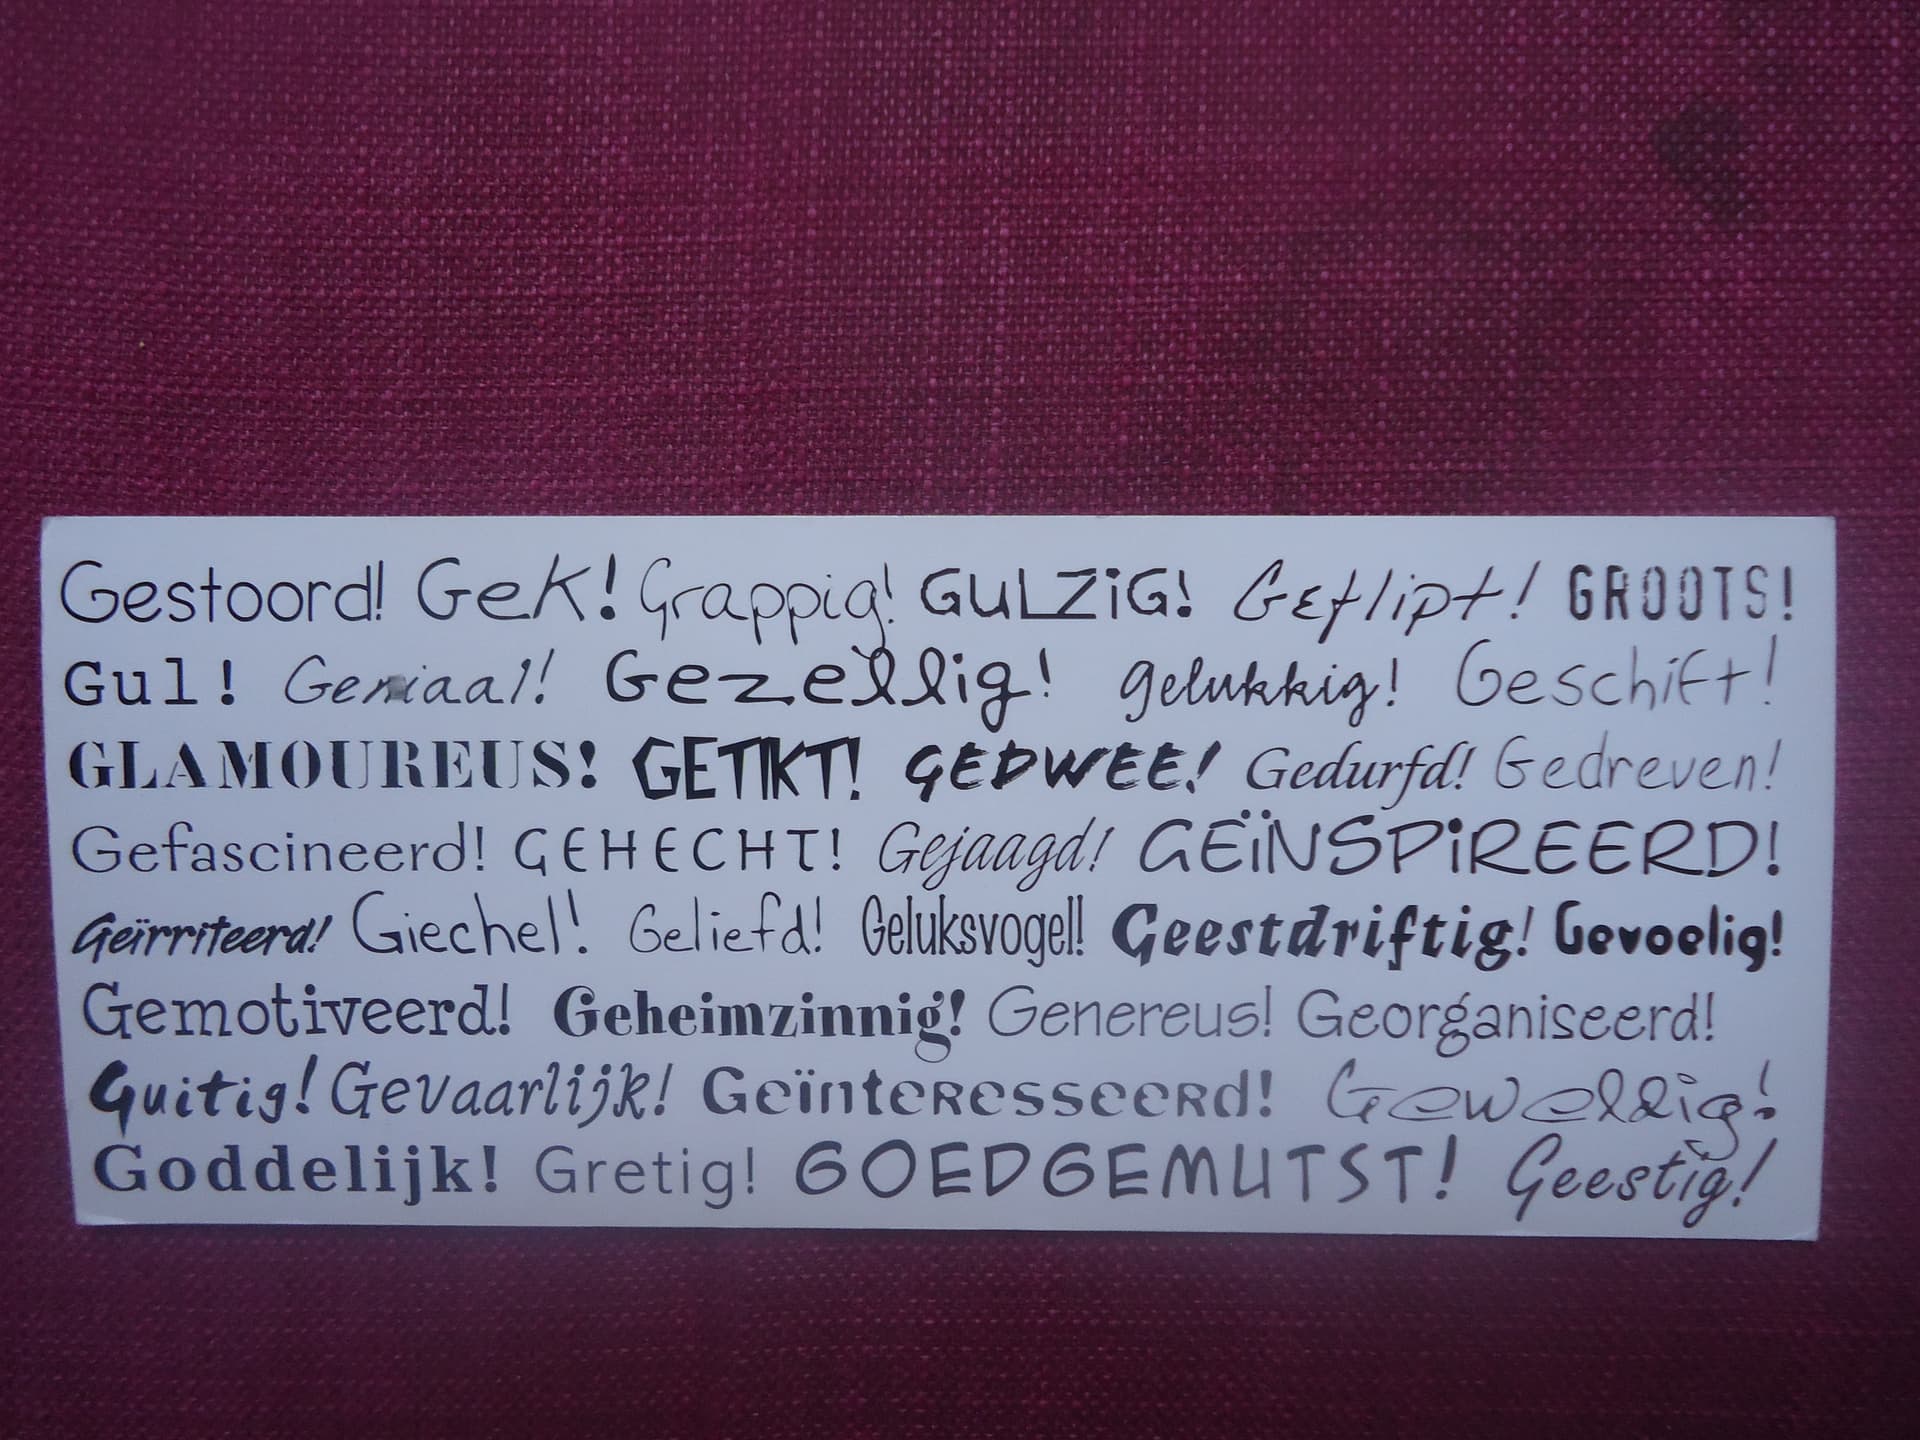 Gestoord! Gek! Grappig! GULZiG! Geflipt! GROOTS!
Gul! Geniaal! Gezellig! gelukkig! Geschift!
GLAMOUREUS! GETIKT! GEDWEE! Gedurfd! Gedreven!
Gefascineerd! GEHECHT! Gejaagd! GEÏNSPiREERD!
Geïrriteerd! Giechel! Geliefd! Geluksvogel! Geestdriftig! Gevoelig!
Gemotiveerd! Geheimzinnig! Genereus! Georganiseerd!
Guitig! Gevaarlijk! Geïnteresseerd! Geweldig!
Goddelijk! Gretig! GOEDGEMUTST! Geestig!